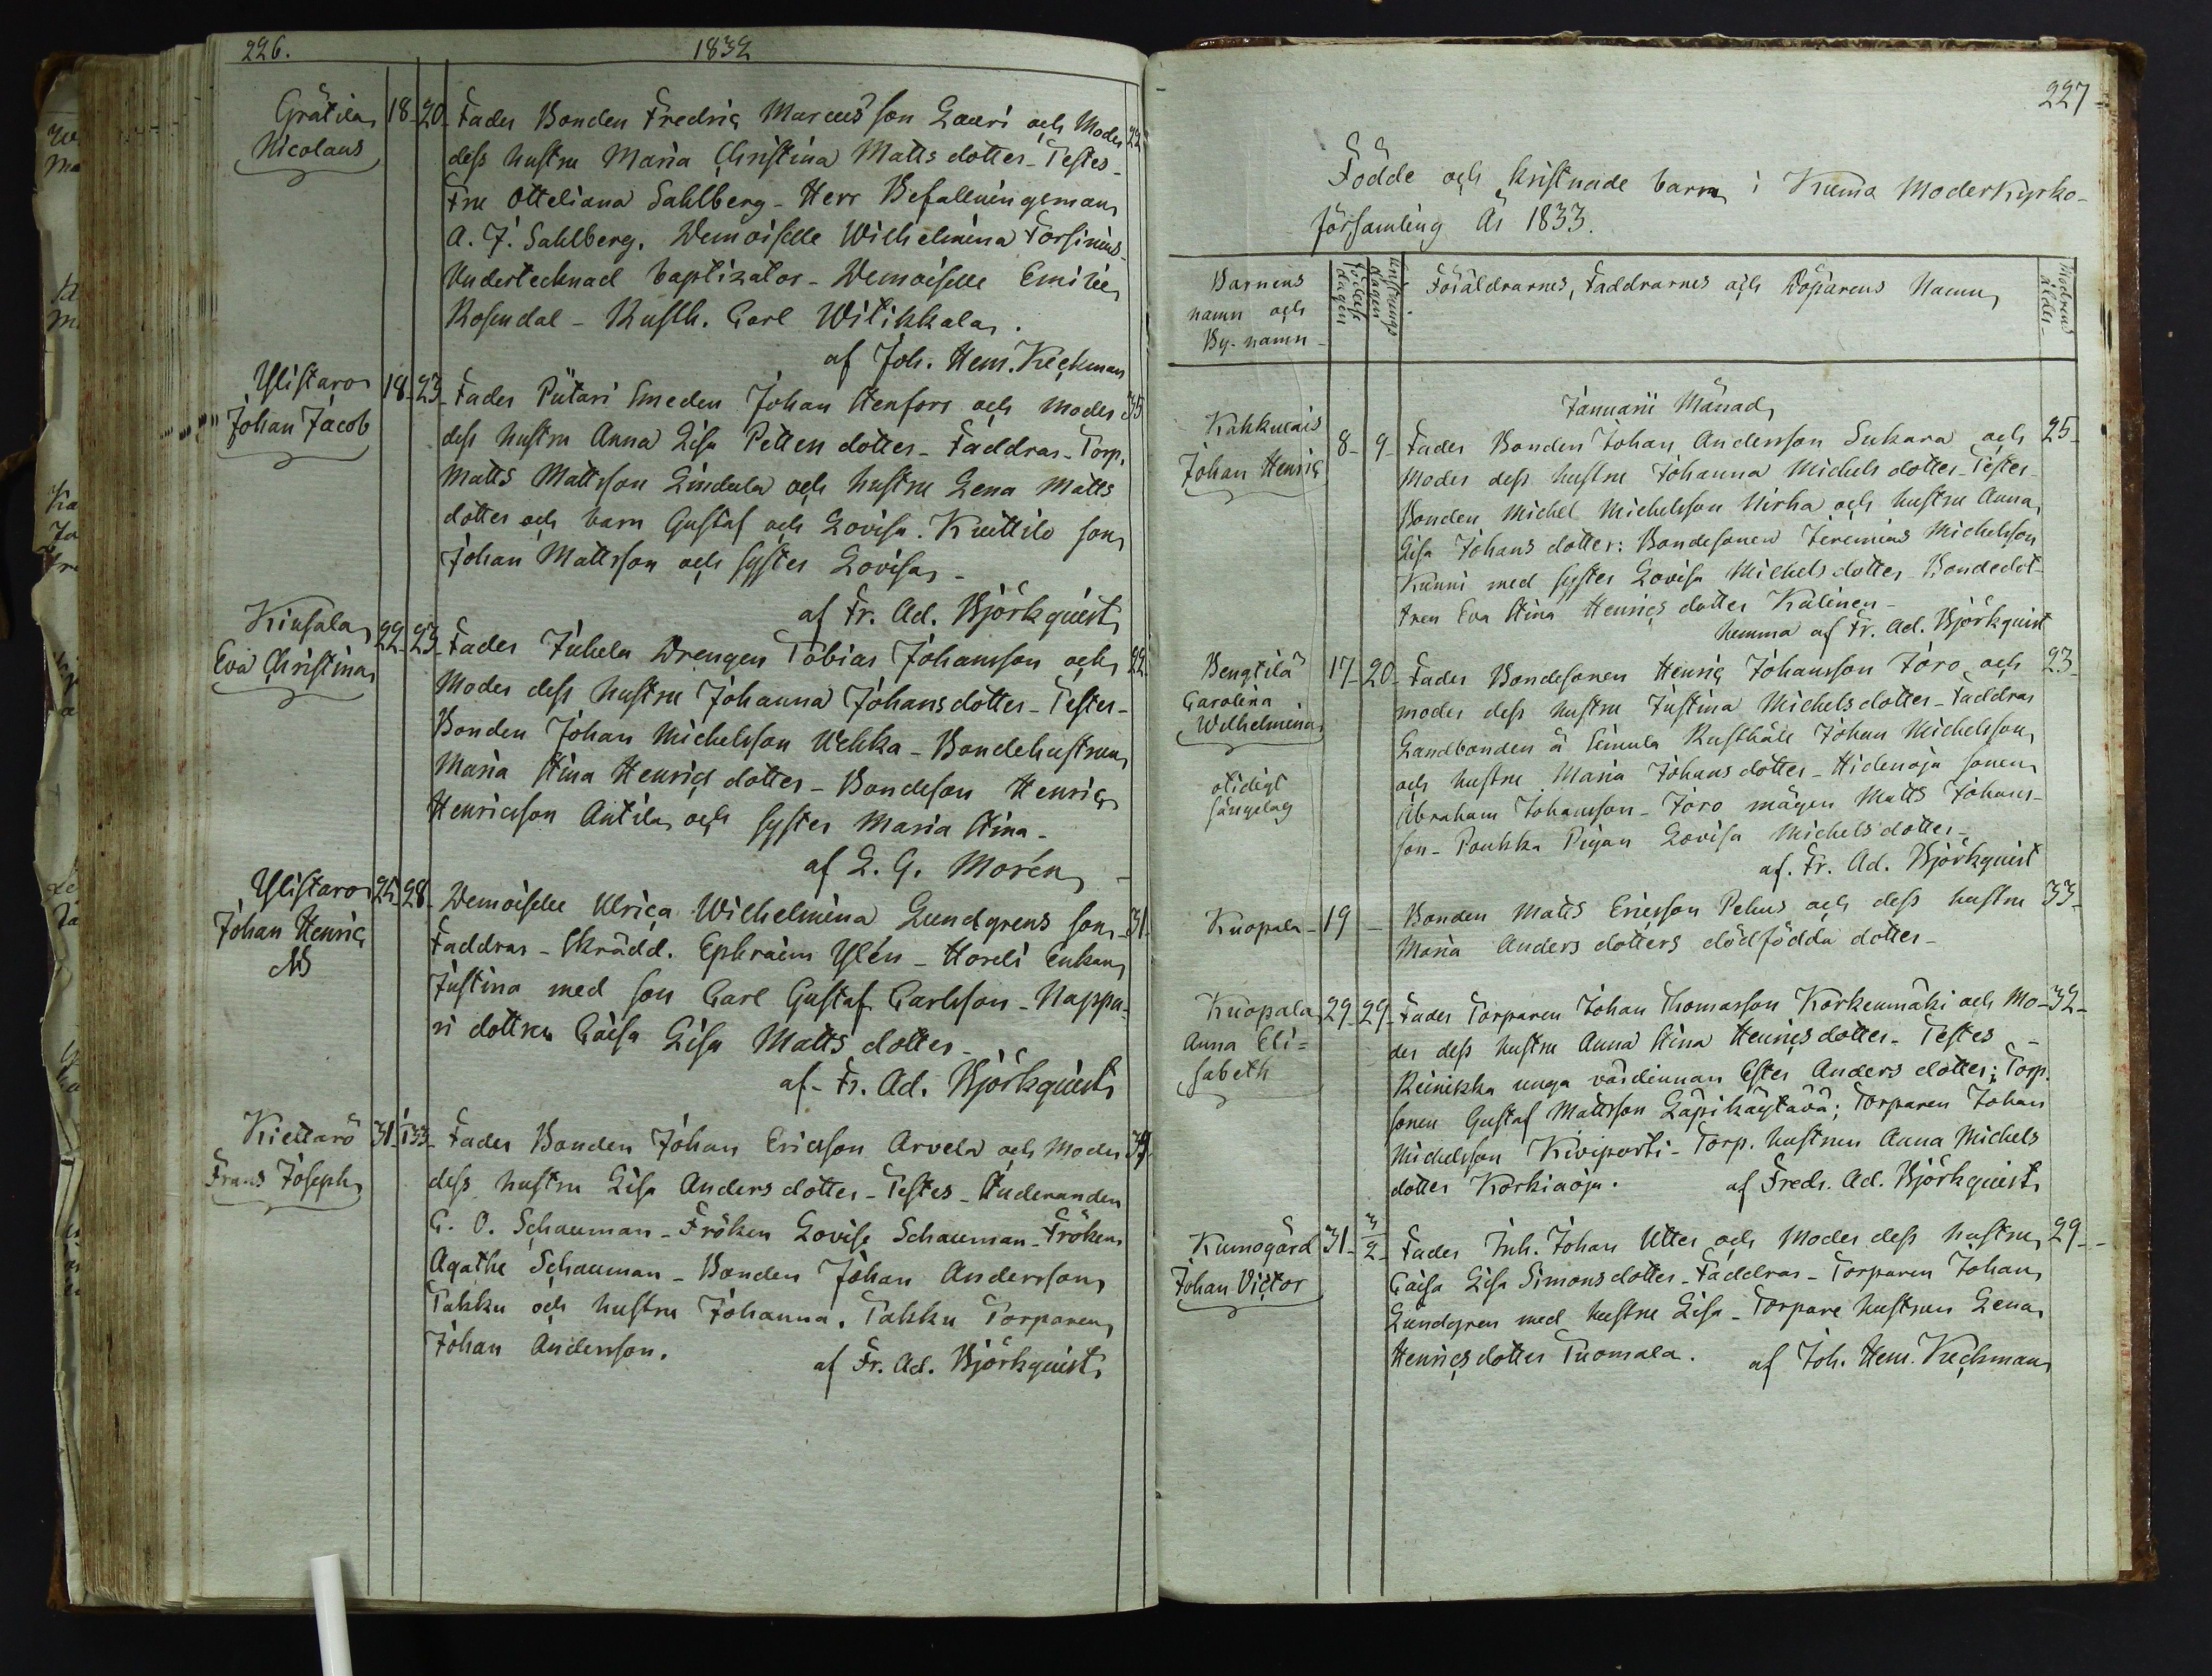 226.
1832
Gråtila 18 20 Fader Bonden Fredric Marcus son Lauri och Moder 22
Nicolaus dess hustru Maria Christina Matts dotter - Testes -
Fru Otteliana Sahlberg - Herr Befallningsman
A. J. Sahlberg. Demoiselle Wilhelmina Forsinius -
Undertecknad baptizator - Demoiselle Emilie
Rosendal - Rusth. Carl Witikkala.
af Joh. Hem. Keckman
Ylistaro 18 23 Fader Piitari Smeden Johan Stenfors och Moder 35
Johan Jacob dess hustru Anna Lisa Petters dotter - Faddrar - Torp.
Matts Mattsson Lindula och hustru Lena Matts
dotter och barn Gustaf och Lovisa. Kuittilo son
Johan Mattsson och syster Lovisa -
af Fr. Ad. Björkquist
Kiufala 22 23 Fader Juhela Drengen Tobias Johansson och 22
Eva Christina Moder dess hustru Johanna Johans dotter - Testes -
Bonden Johan Michelsson Uchka - Bondehustrun
Maria Stina Henrics dotter - Bondeson Henric
Henricsson Antila och syster Maria Stina -
af L. G. Morén
Ylistaro 25 28 Demoiselle Ulrica Wilhelmina Lundgrens son - 31
Johan Henric Faddrar - Skrädd. Ephraim Ylén - Horeli Enkan
Justina med son Carl Gustaf Carlsson - Nappa-
ri dottren Caisa Lisa Matts dotter -
af - Fr. Ad. Björkquist
Kiettarö 31 1/33 Fader Bonden Johan Ericsson Arvela och Moder
Frans Joseph dess hustru Lisa Anders dotter - Testes - Studeranden
G. O. Schauman - Fröken Lovise Schauman - Fröken
Agathe Schauman - Bonden Johan Andersson
Takku och hustru Johanna. Takku Torparen
Johan Andersson.
af Fr. Ad. Björkquist
227
Födde och kristnade barn i Kumo Moderkyrko-
församling År 1833.
Barnens namn och By-namn
födelse dagen
kristnings dagen
Föräldrarnes, Faddrarnes och Döparens Namn
Modrens ålder
Januarii Månad
Kakkulais 8 9 Fader Bonden Johan Andersson Sukara och 25
Johan Henric Moder dess hustru Johanna Michels dotter - Testes -
Bonden Michel Michelsson Nirha och hustru Anna
Lisa Johans dotter: Bondesonen Jeremias Michelsson
Kunni med syster Lovisa Michels dotter - Bondedot-
tren Eva Stina Henrics dotter Kalinen -
hemma af Fr. Ad. Björkquist
Bengtilä 17 20 Fader Bondesonen Henric Johansson Joro och 23
Carolina moder dess hustru Justina Michels dotter - Faddrar
Wilhelmina Landbonden å Simula Rusthåll Johan Michelsson
otidigt och hustru Maria Johans dotter - Hidenoja sonen
sängelag Abraham Johansson - Joro mågen Matts Johans-
son - Poukka Pigan Lovisa Michels dotter -
af. Fr. Ad. Björkquist
Kuopala 19 - Bonden Matts Ericsson Pehus och dess hustru 33
Maria Anders dotters dödfödda dotter -
Kuopala 29 29 Fader Torparen Johan Thomasson Korkeumäki och Mo- 32
Anna Eli= der dess hustru Anna Stina Henrics dotter - Testes -
sabeth Reinikka unga värdinnan Ester Anders dotter; Torp.
sonen Gustaf Mattsson Läpikäytävä; Torparen Johan
Michelsson Kiviporti - Torp. hustrun Anna Michels
dotter Korkiaoja. af Fredr. Ad. Björkquist
Kumogård 31 3/2 Fader Inh. Johan Utter och Moder dess hustru 29
Johan Victor Caisa Lisa Simons dotter - Faddrar - Torparen Johan
Lundgren med hustru Lisa - Torpare hustrun Lena
Henrics dotter Tuomala. af Joh. Hem. Keckman